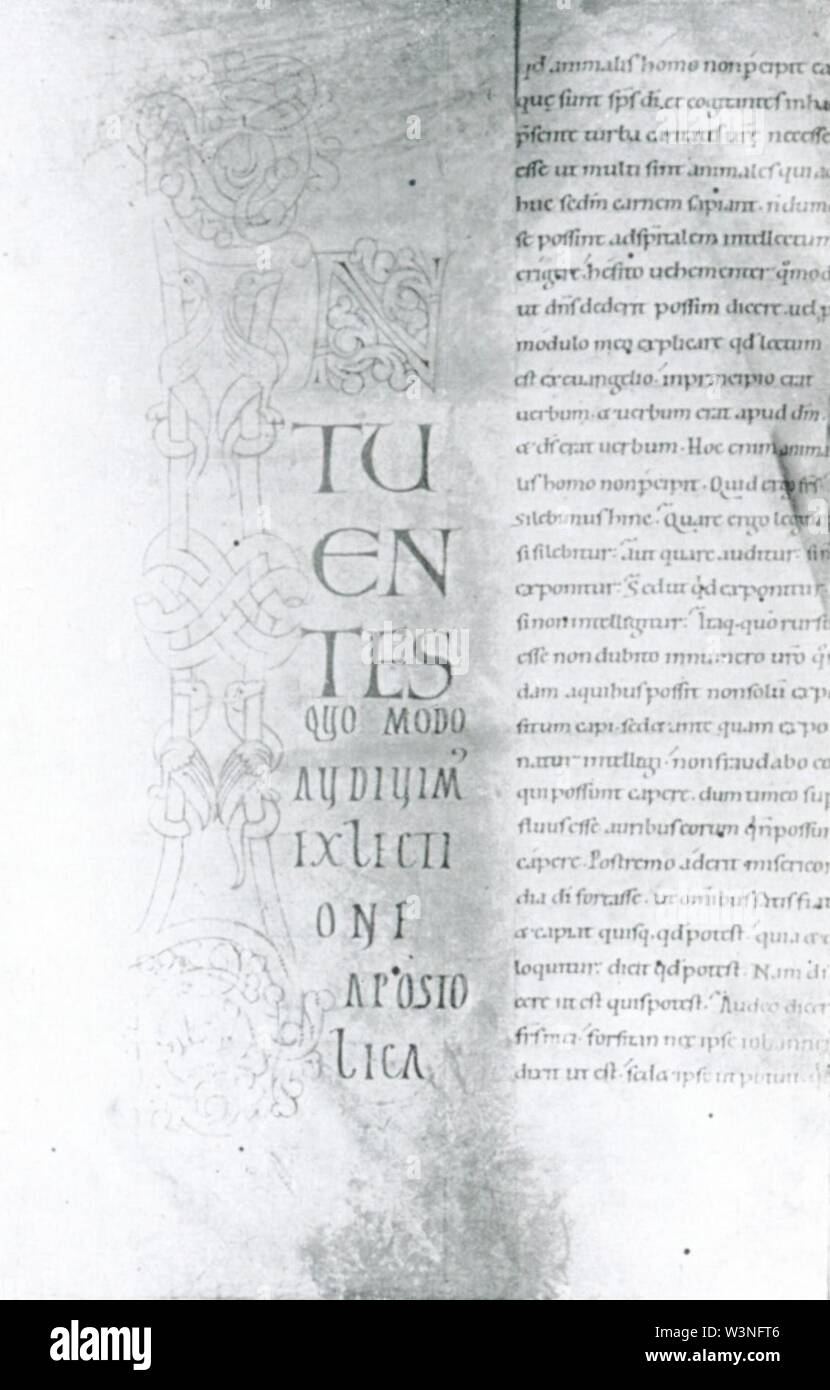 IN
TU
EN
TES
QUO MODO
AUDIUIMꝰ
EX LECTI
ONE
APOSTO
LICA
qd animalis homo non pcipit ea
quę sunt sps di. et cogitantes in hac
psente turba
esse ut multi sint animales qui ad
huc scdm carnem sapiant. ndum
se possint ad spitalem intellectum
erigere. hesito uehementer qmodo
ut dns dederit possim dicere. uel p
modulo meo explicare qd lectum
est ex euangelio. in principio erat
uerbum. & uerbum erat apud dm.
& ds erat uerbum. Hoc enim anima
lis homo non pcipit. Quid ergo frs
silebimus hinc. Quare ergo legitur
si silebitur. Aut quare auditur. si n
exponitur. Sed ut qd exponitur
si non intelligitur. Itaq. quo rursu
esse non dubito in numero uro q
dam a quibus possit non solu expo
situm capi. sed & ante quam expo
natur intelligi. non fraudabo eos
qui possunt capere. dum timeo sup
fluus esse auribus eorum q n possunt
capere. Postremo aderit misericor
dia di fortasse. ut omnibus satis fiat
& capiat quisq. qd potest. quia & q
loquitur. dicit qd potest. Nam di
cere ut est quis potest. Audeo dicere
frs mei. forsitan nec ipse iohannes
dixit ut est. sed & ipse ut potuit. q
alamy
alamy
Image ID: W3NFT6
www.alamy.com